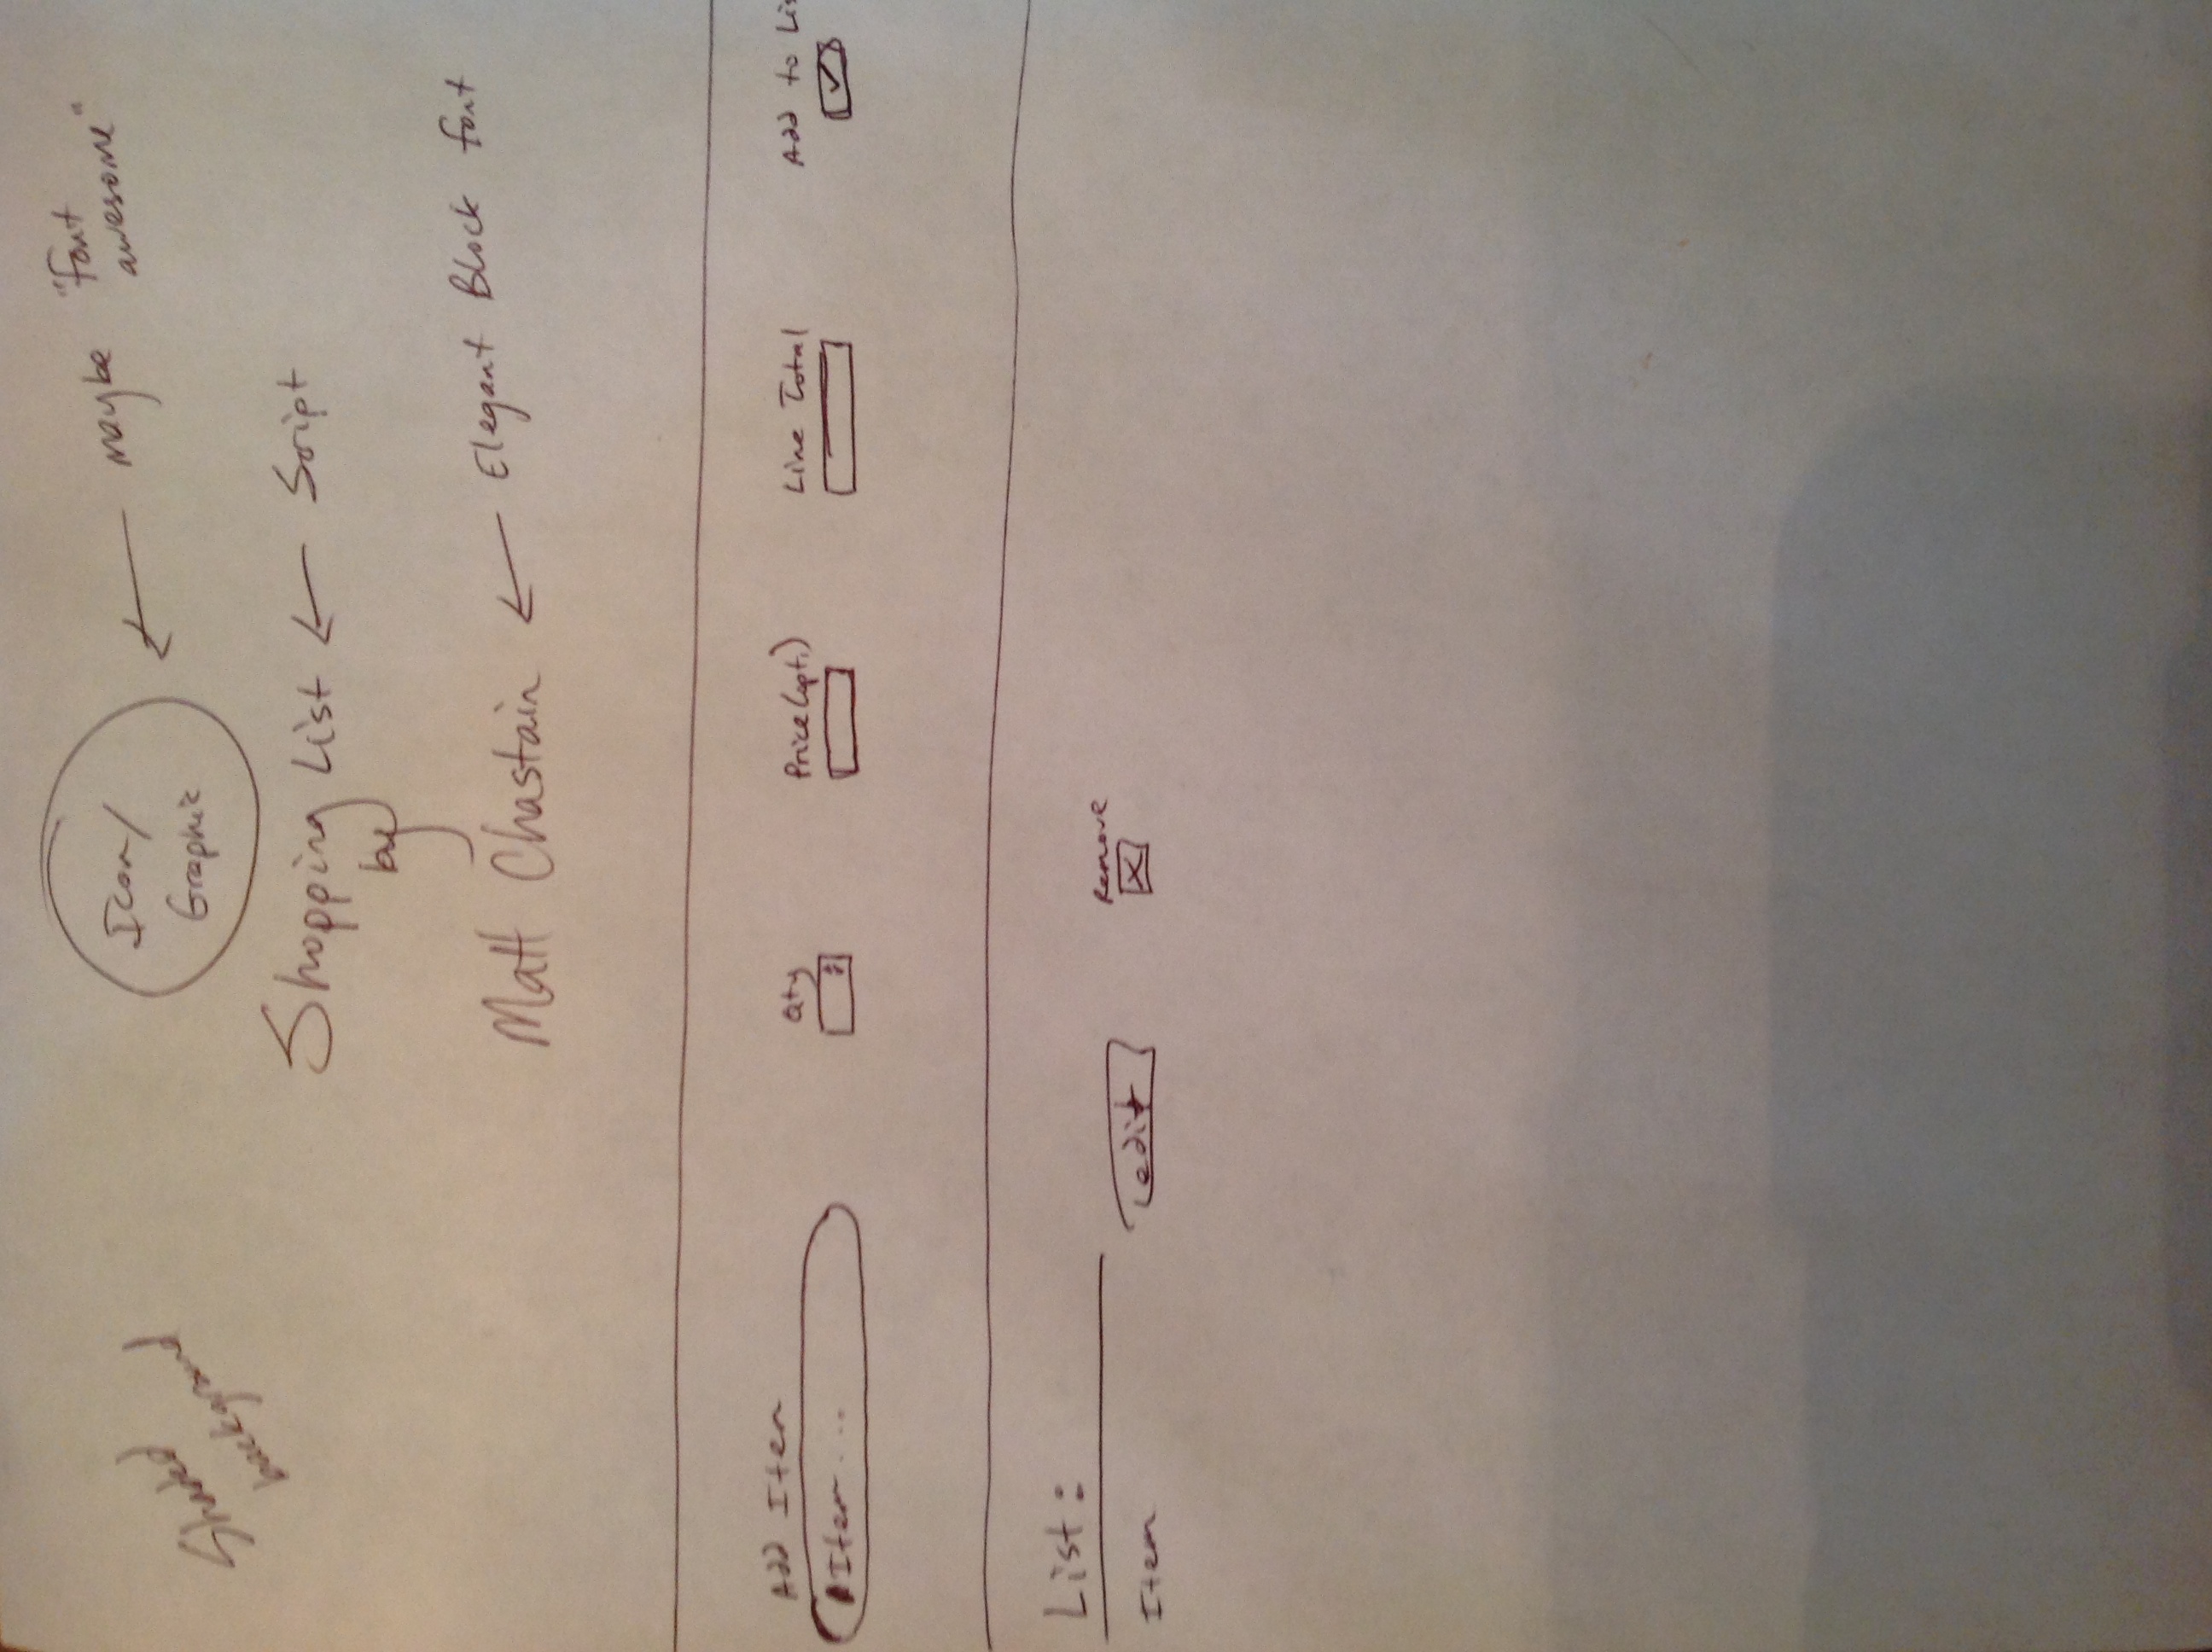 Shaded
background
Icon/
Graphic
maybe "font
awesome"
Shopping List
Script
by
Matt Chastain
Elegant Block font
Add Item
Item ...
Qty
Price (opt.)
Line Total
Add to Lis
List:
Item
edit
Remove